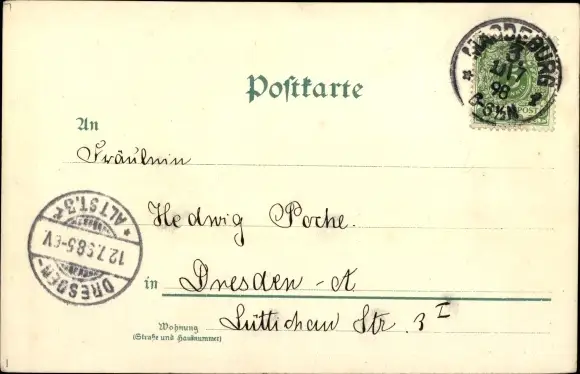 MAGDEBURG
3
98
Postkarte
An
Fräulein
Hedwig Poche.
in Dresden-A
Lüttichau Str. 3 I
Wohnung
(Straße und Hausnummer)
DRESDEN-
ALTST. 3
12.7.98.5-6V.
POST